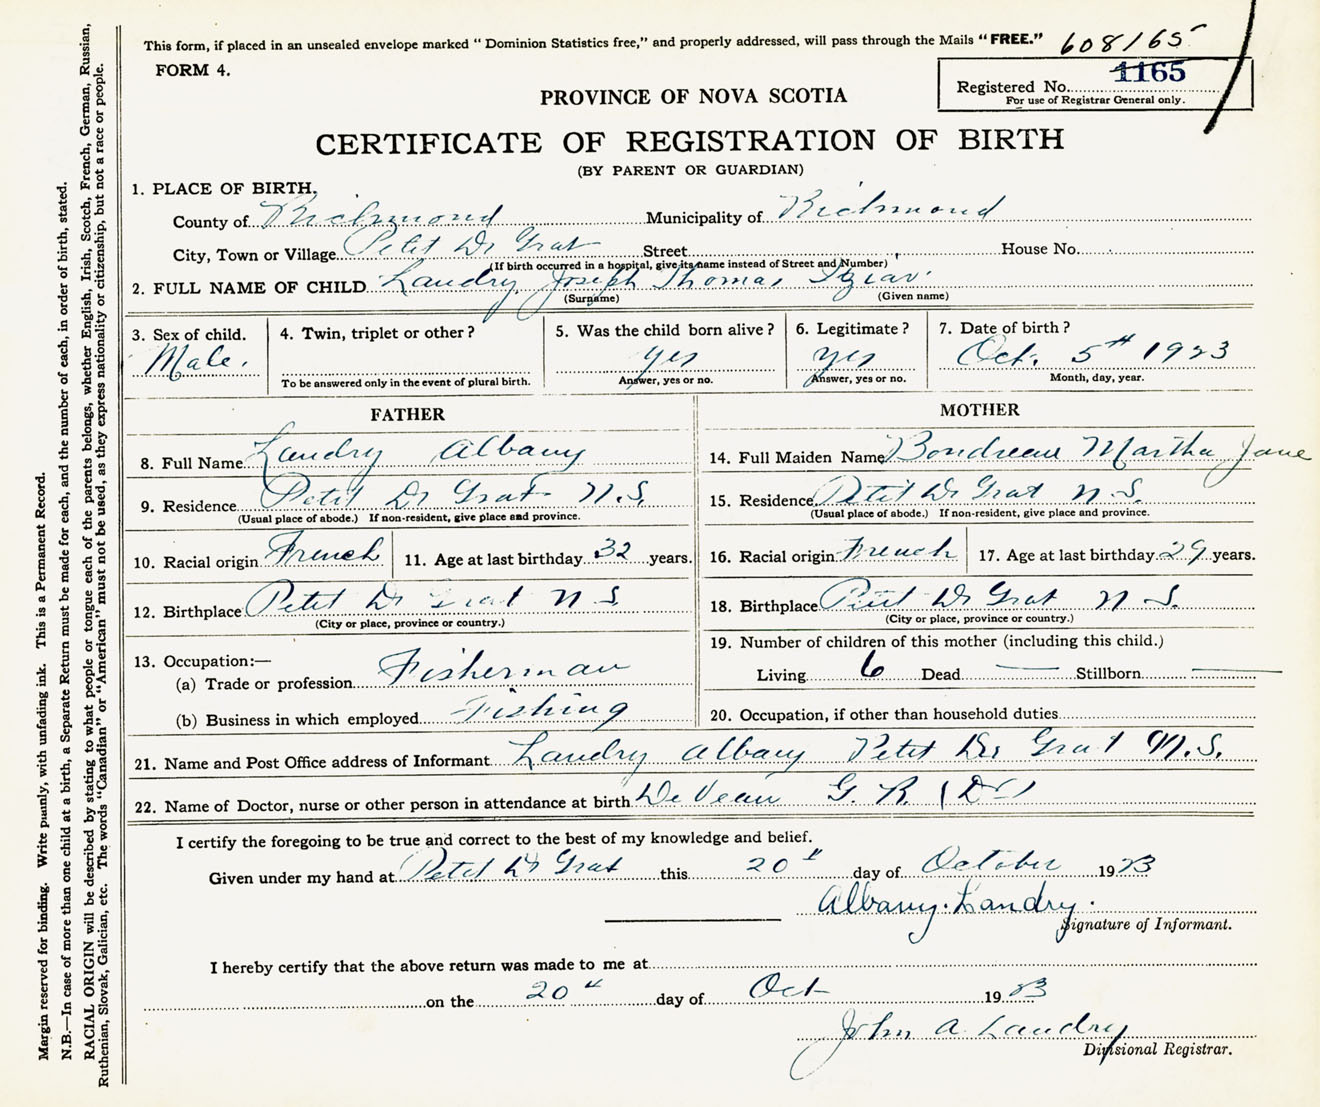 This form, if placed in an unsealed envelope marked " Dominion Statistics free," and properly addressed, will pass through the Mails "FREE."
608165
FORM 4.
Registered No. 1165
For use of Registrar General only.
PROVINCE OF NOVA SCOTIA
CERTIFICATE OF REGISTRATION OF BIRTH
(BY PARENT OR GUARDIAN)
1. PLACE OF BIRTH.
County of Richmond Municipality of Richmond
City, Town or Village Petit De Grat Street House No.
(If birth occurred in a hospital, give its name instead of Street and Number)
2. FULL NAME OF CHILD Landry Joseph Thomas
(Surname) (Given name)
3. Sex of child. Male.
4. Twin, triplet or other ?
To be answered only in the event of plural birth.
5. Was the child born alive ? yes
Answer, yes or no.
6. Legitimate ? yes
Answer, yes or no.
7. Date of birth ? Oct. 5th 1923
Month, day, year.
FATHER
8. Full Name Landry Albany
9. Residence Petit De Grat N.S.
(Usual place of abode.) If non-resident, give place and province.
10. Racial origin French 11. Age at last birthday 32 years.
12. Birthplace Petit De Grat N S.
(City or place, province or country.)
13. Occupation:—
(a) Trade or profession Fisherman
(b) Business in which employed Fishing
MOTHER
14. Full Maiden Name Boudreau Martha Jane
15. Residence Petit De Grat N.S.
(Usual place of abode.) If non-resident, give place and province.
16. Racial origin French 17. Age at last birthday 29 years.
18. Birthplace Petit De Grat N S.
(City or place, province or country.)
19. Number of children of this mother (including this child.)
Living 6 Dead — Stillborn —
20. Occupation, if other than household duties
21. Name and Post Office address of Informant Landry Albany Petit De Grat N.S.
22. Name of Doctor, nurse or other person in attendance at birth DeVeau G. R. (Dr)
I certify the foregoing to be true and correct to the best of my knowledge and belief.
Given under my hand at Petit De Grat this 20th day of October 1923
Albany. Landry.
Signature of Informant.
I hereby certify that the above return was made to me at
on the 20th day of Oct 1923
John A. Landry
Divisional Registrar.
Margin reserved for binding. Write plainly, with unfading ink. This is a Permanent Record.
N.B.—In case of more than one child at a birth, a Separate Return must be made for each, and the number of each, in order of birth, stated.
RACIAL ORIGIN will be described by stating to what people or tongue each of the parents belongs, whether English, Irish, Scotch, French, German, Russian,
Ruthenian, Slovak, Galician, etc. The words "Canadian" or "American" must not be used, as they express nationality or citizenship, but not a race or people.